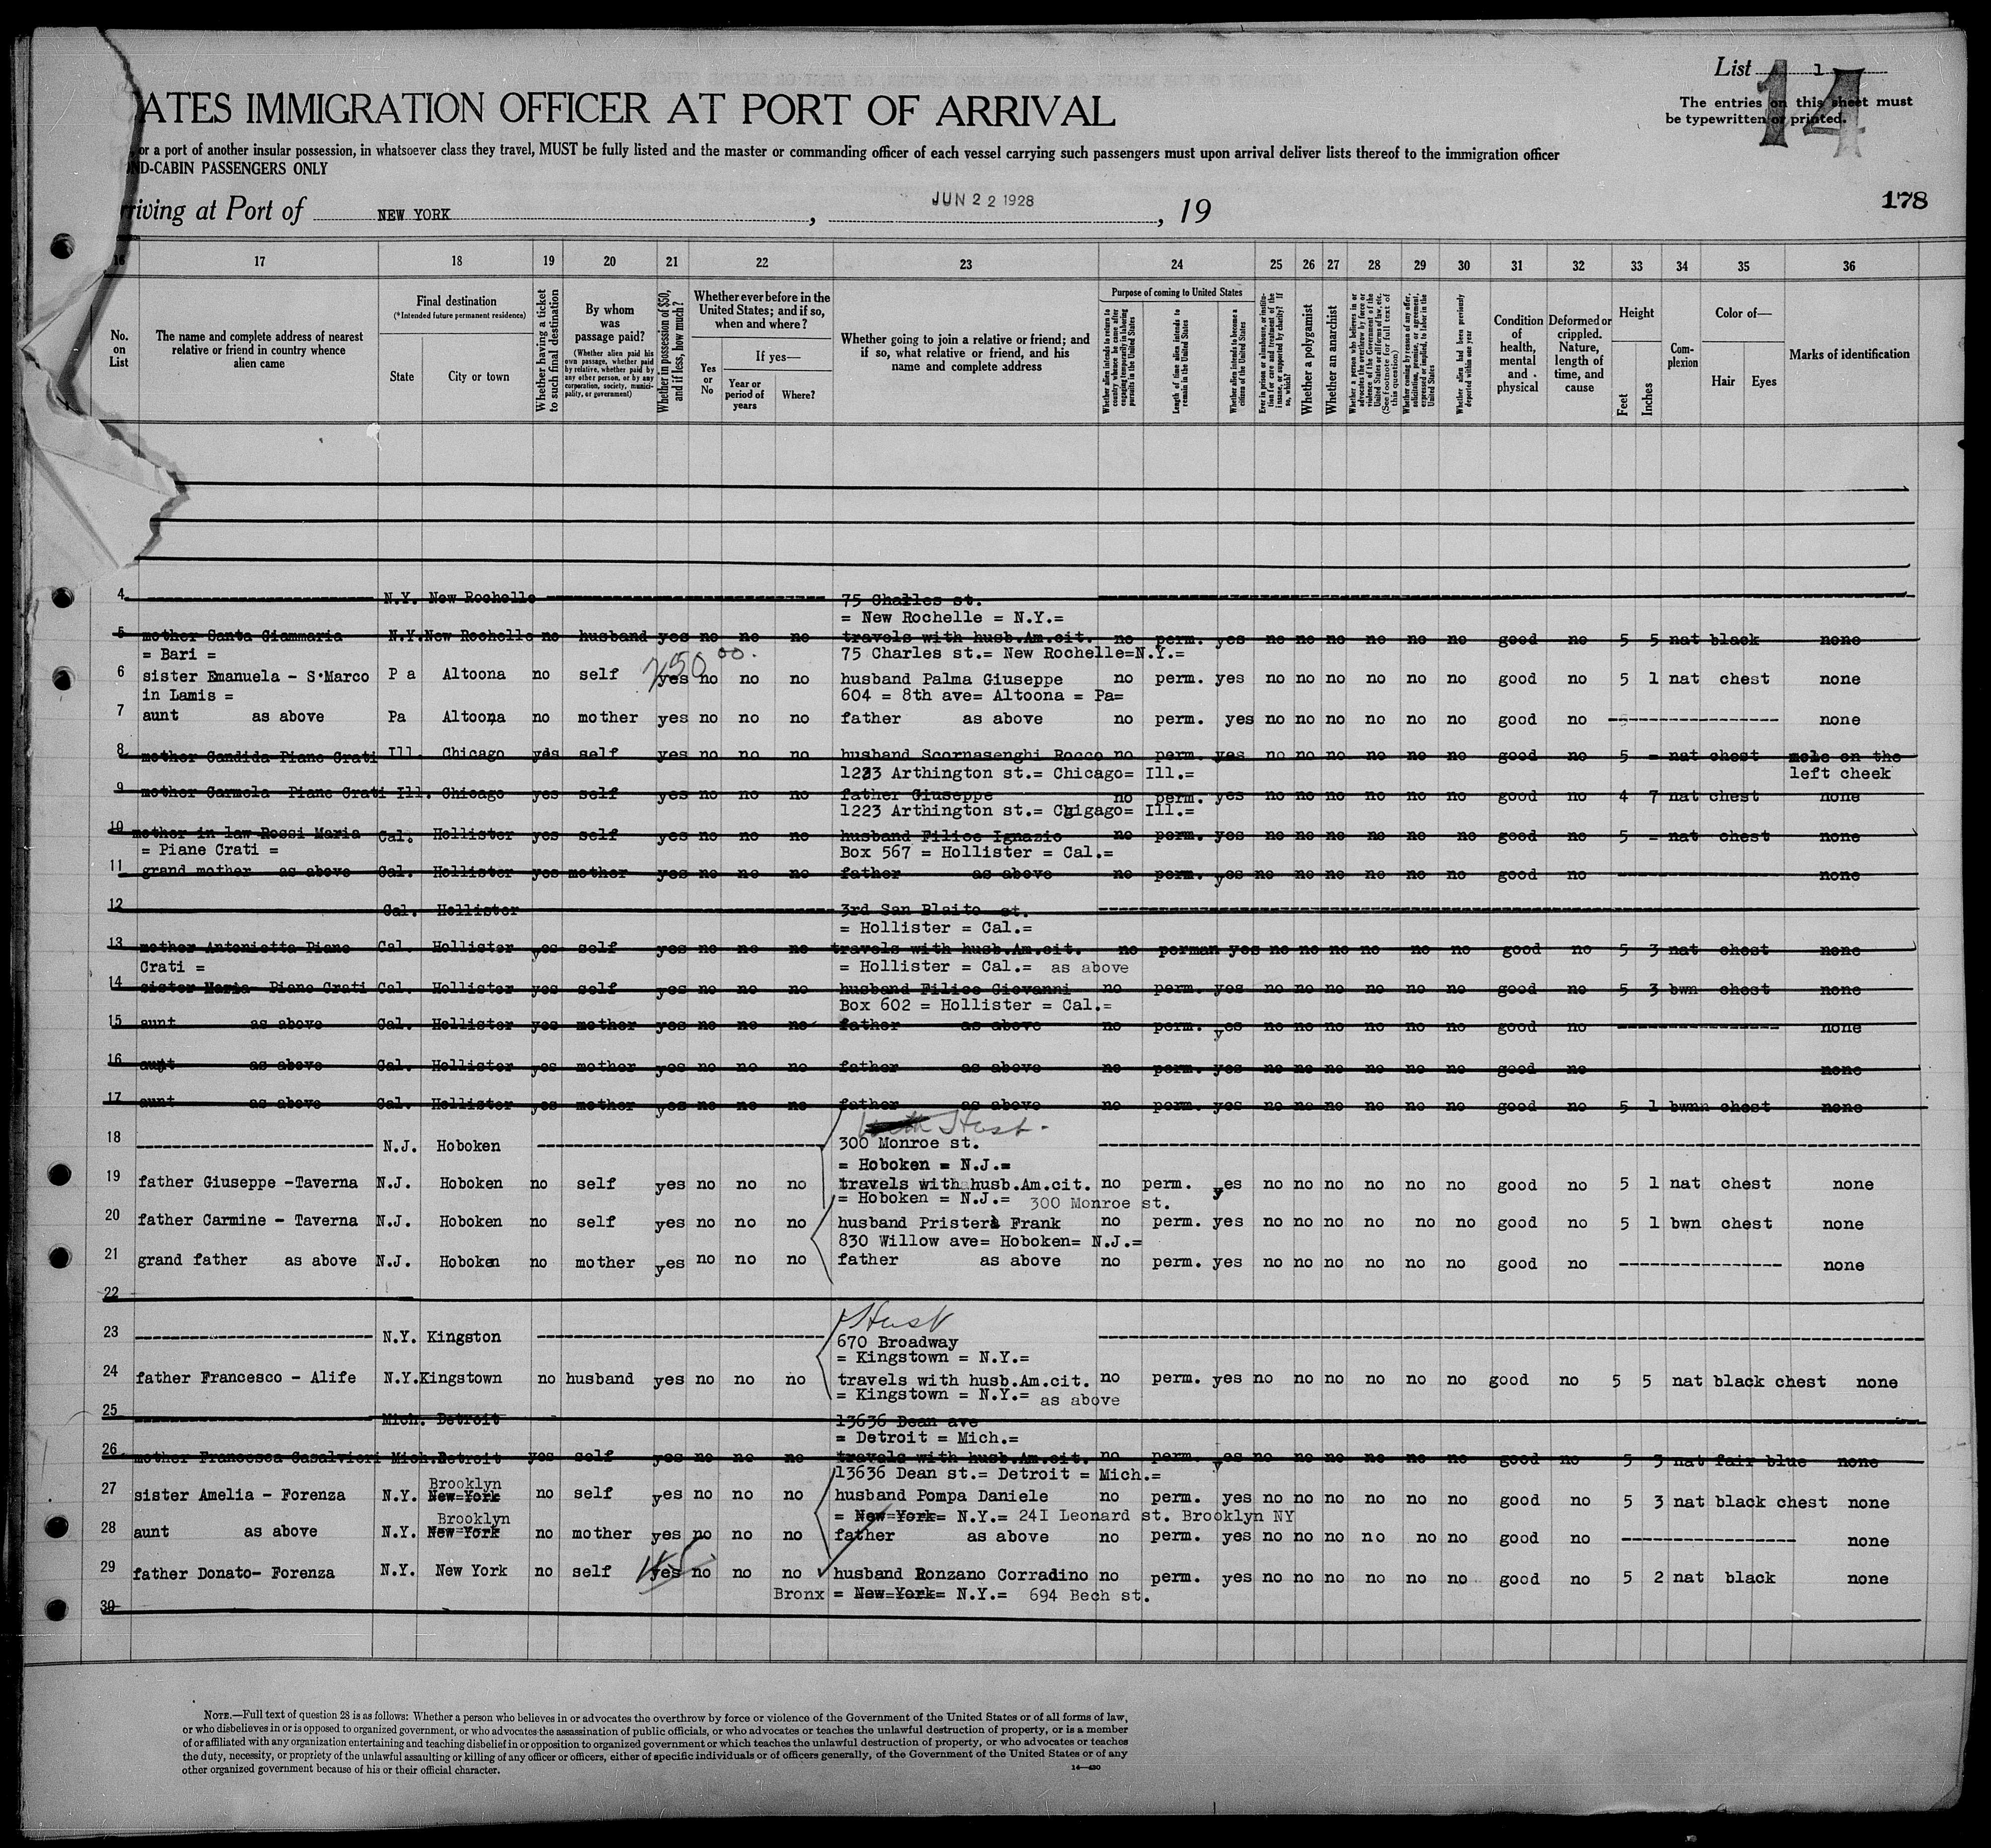 List 1
14
The entries on this sheet must
be typewritten or printed.
ATES IMMIGRATION OFFICER AT PORT OF ARRIVAL
or a port of another insular possession, in whatsoever class they travel, MUST be fully listed and the master or commanding officer of each vessel carrying such passengers must upon arrival deliver lists thereof to the immigration officer
ND-CABIN PASSENGERS ONLY
riving at Port of NEW YORK, JUN 22 1928, 19
178
16 17 18 19 20 21 22 23 24 25 26 27 28 29 30 31 32 33 34 35 36
No. on List
The name and complete address of nearest relative or friend in country whence alien came
Final destination
(*Intended future permanent residence)
State
City or town
Whether having a ticket to such final destination
By whom was passage paid?
(Whether alien paid his own passage, whether paid by relative, whether paid by any other person, or by any corporation, society, municipality, or government)
Whether in possession of $50, and if less, how much?
Whether ever before in the United States; and if so, when and where?
Yes or No
If yes—
Year or period of years
Where?
Whether going to join a relative or friend; and if so, what relative or friend, and his name and complete address
Purpose of coming to United States
Whether alien intends to return to country whence he came after engaging temporarily in laboring pursuits in the United States
Length of time alien intends to remain in the United States
Whether alien intends to become a citizen of the United States
Ever in prison or almshouse, or institution for care and treatment of the insane, or supported by charity? If so, which?
Whether a polygamist
Whether an anarchist
Whether a person who believes in or advocates the overthrow by force or violence of the Government of the United States or all forms of law, etc. (See footnote for full text of this question)
Whether coming by reason of any offer, solicitation, promise, or agreement, expressed or implied, to labor in the United States
Whether alien had been previously deported within one year
Condition of health, mental and physical
Deformed or crippled. Nature, length of time, and cause
Height
Feet
Inches
Complexion
Color of—
Hair
Eyes
Marks of identification
4 N.Y. New Rochelle 75 Charles st.
= New Rochelle = N.Y.=
5 mother Santa Giammaria N.Y. New Rochelle no husband yes no no no travels with husb.Am.cit. no perm. yes no no no no no no good no 5 5 nat black none
= Bari = 75 Charles st.= New Rochelle=N.Y.=
250 00.
6 sister Emanuela - S.Marco Pa Altoona no self yes no no no husband Palma Giuseppe no perm. yes no no no no no no good no 5 1 nat chest none
in Lamis = 604 = 8th ave= Altoona = Pa=
7 aunt as above Pa Altoona no mother yes no no no father as above no perm. yes no no no no no no good no ----------------- none
8 mother Candida Piane Crati Ill. Chicago yes self yes no no no husband Scornasenghi Rocco no perm. yes no no no no no no good no 5 - nat chest mole on the
1223 Arthington st.= Chicago= Ill.= left cheek
9 mother Carmela Piane Crati Ill. Chicago yes self yes no no no father Giuseppe no perm. yes no no no no no no good no 4 7 nat chest none
1223 Arthington st.= Chigago= Ill.=
10 mother in law Rossi Maria Cal. Hollister yes self yes no no no husband Filice Ignazio no perm. yes no no no no no no good no 5 - nat chest none
= Piane Crati = Box 567 = Hollister = Cal.=
11 grand mother as above Cal. Hollister yes mother yes no no no father as above no perm. yes no no no no no no good no ----------------- none
12 Cal. Hollister 3rd San Blaito st.
= Hollister = Cal.=
13 mother Antonietta Piane Cal. Hollister yes self yes no no no travels with husb.Am.cit. no perman yes no no no no no no good no 5 3 nat chest none
Crati = = Hollister = Cal.= as above
14 sister Maria Piane Crati Cal. Hollister yes self yes no no no husband Filice Giovanni no perm. yes no no no no no no good no 5 3 bwn chest none
Box 602 = Hollister = Cal.=
15 aunt as above Cal. Hollister yes mother yes no no no father as above no perm. yes no no no no no no good no ----------------- none
16 aunt as above Cal. Hollister yes mother yes no no no father as above no perm. yes no no no no no no good no none
17 aunt as above Cal. Hollister yes mother yes no no no father as above no perm. yes no no no no no no good no 5 1 bwnn chest none
Host.
18 N.J. Hoboken 300 Monroe st.
= Hoboken = N.J.=
19 father Giuseppe -Taverna N.J. Hoboken no self yes no no no travels with husb.Am.cit. no perm. yes no no no no no no good no 5 1 nat chest none
= Hoboken = N.J.= 300 Monroe st.
20 father Carmine - Taverna N.J. Hoboken no self yes no no no husband Pristerà Frank no perm. yes no no no no no no good no 5 1 bwn chest none
830 Willow ave= Hoboken= N.J.=
21 grand father as above N.J. Hoboken no mother yes no no no father as above no perm. yes no no no no no no good no ----------------- none
22
Host
23 N.Y. Kingston 670 Broadway
= Kingstown = N.Y.=
24 father Francesco - Alife N.Y. Kingstown no husband yes no no no travels with husb.Am.cit. no perm. yes no no no no no no good no 5 5 nat black chest none
= Kingstown = N.Y.= as above
25 Mich. Detroit 13636 Dean ave
= Detroit = Mich.=
26 mother Francesca Casalvieri Mich. Detroit yes self yes no no no travels with husb.Am.cit. no perm. yes no no no no no no good no 5 3 nat fair blue none
13636 Dean st.= Detroit = Mich.=
Brooklyn
27 sister Amelia - Forenza N.Y. New=York no self yes no no no husband Pompa Daniele no perm. yes no no no no no no good no 5 3 nat black chest none
Brooklyn = New=York= N.Y.= 241 Leonard st. Brooklyn NY
28 aunt as above N.Y. New=York no mother yes no no no father as above no perm. yes no no no no no no good no ----------------- none
29 father Donato- Forenza N.Y. New York no self yes no no no husband Ronzano Corradino no perm. yes no no no no no no good no 5 2 nat black none
Bronx = New=York= N.Y.= 694 Bech st.
30
NOTE.—Full text of question 28 is as follows: Whether a person who believes in or advocates the overthrow by force or violence of the Government of the United States or of all forms of law,
or who disbelieves in or is opposed to organized government, or who advocates the assassination of public officials, or who advocates or teaches the unlawful destruction of property, or is a member
of or affiliated with any organization entertaining and teaching disbelief in or opposition to organized government or which teaches the unlawful destruction of property, or who advocates or teaches
the duty, necessity, or propriety of the unlawful assaulting or killing of any officer or officers, either of specific individuals or of officers generally, of the Government of the United States or of any
other organized government because of his or their official character.